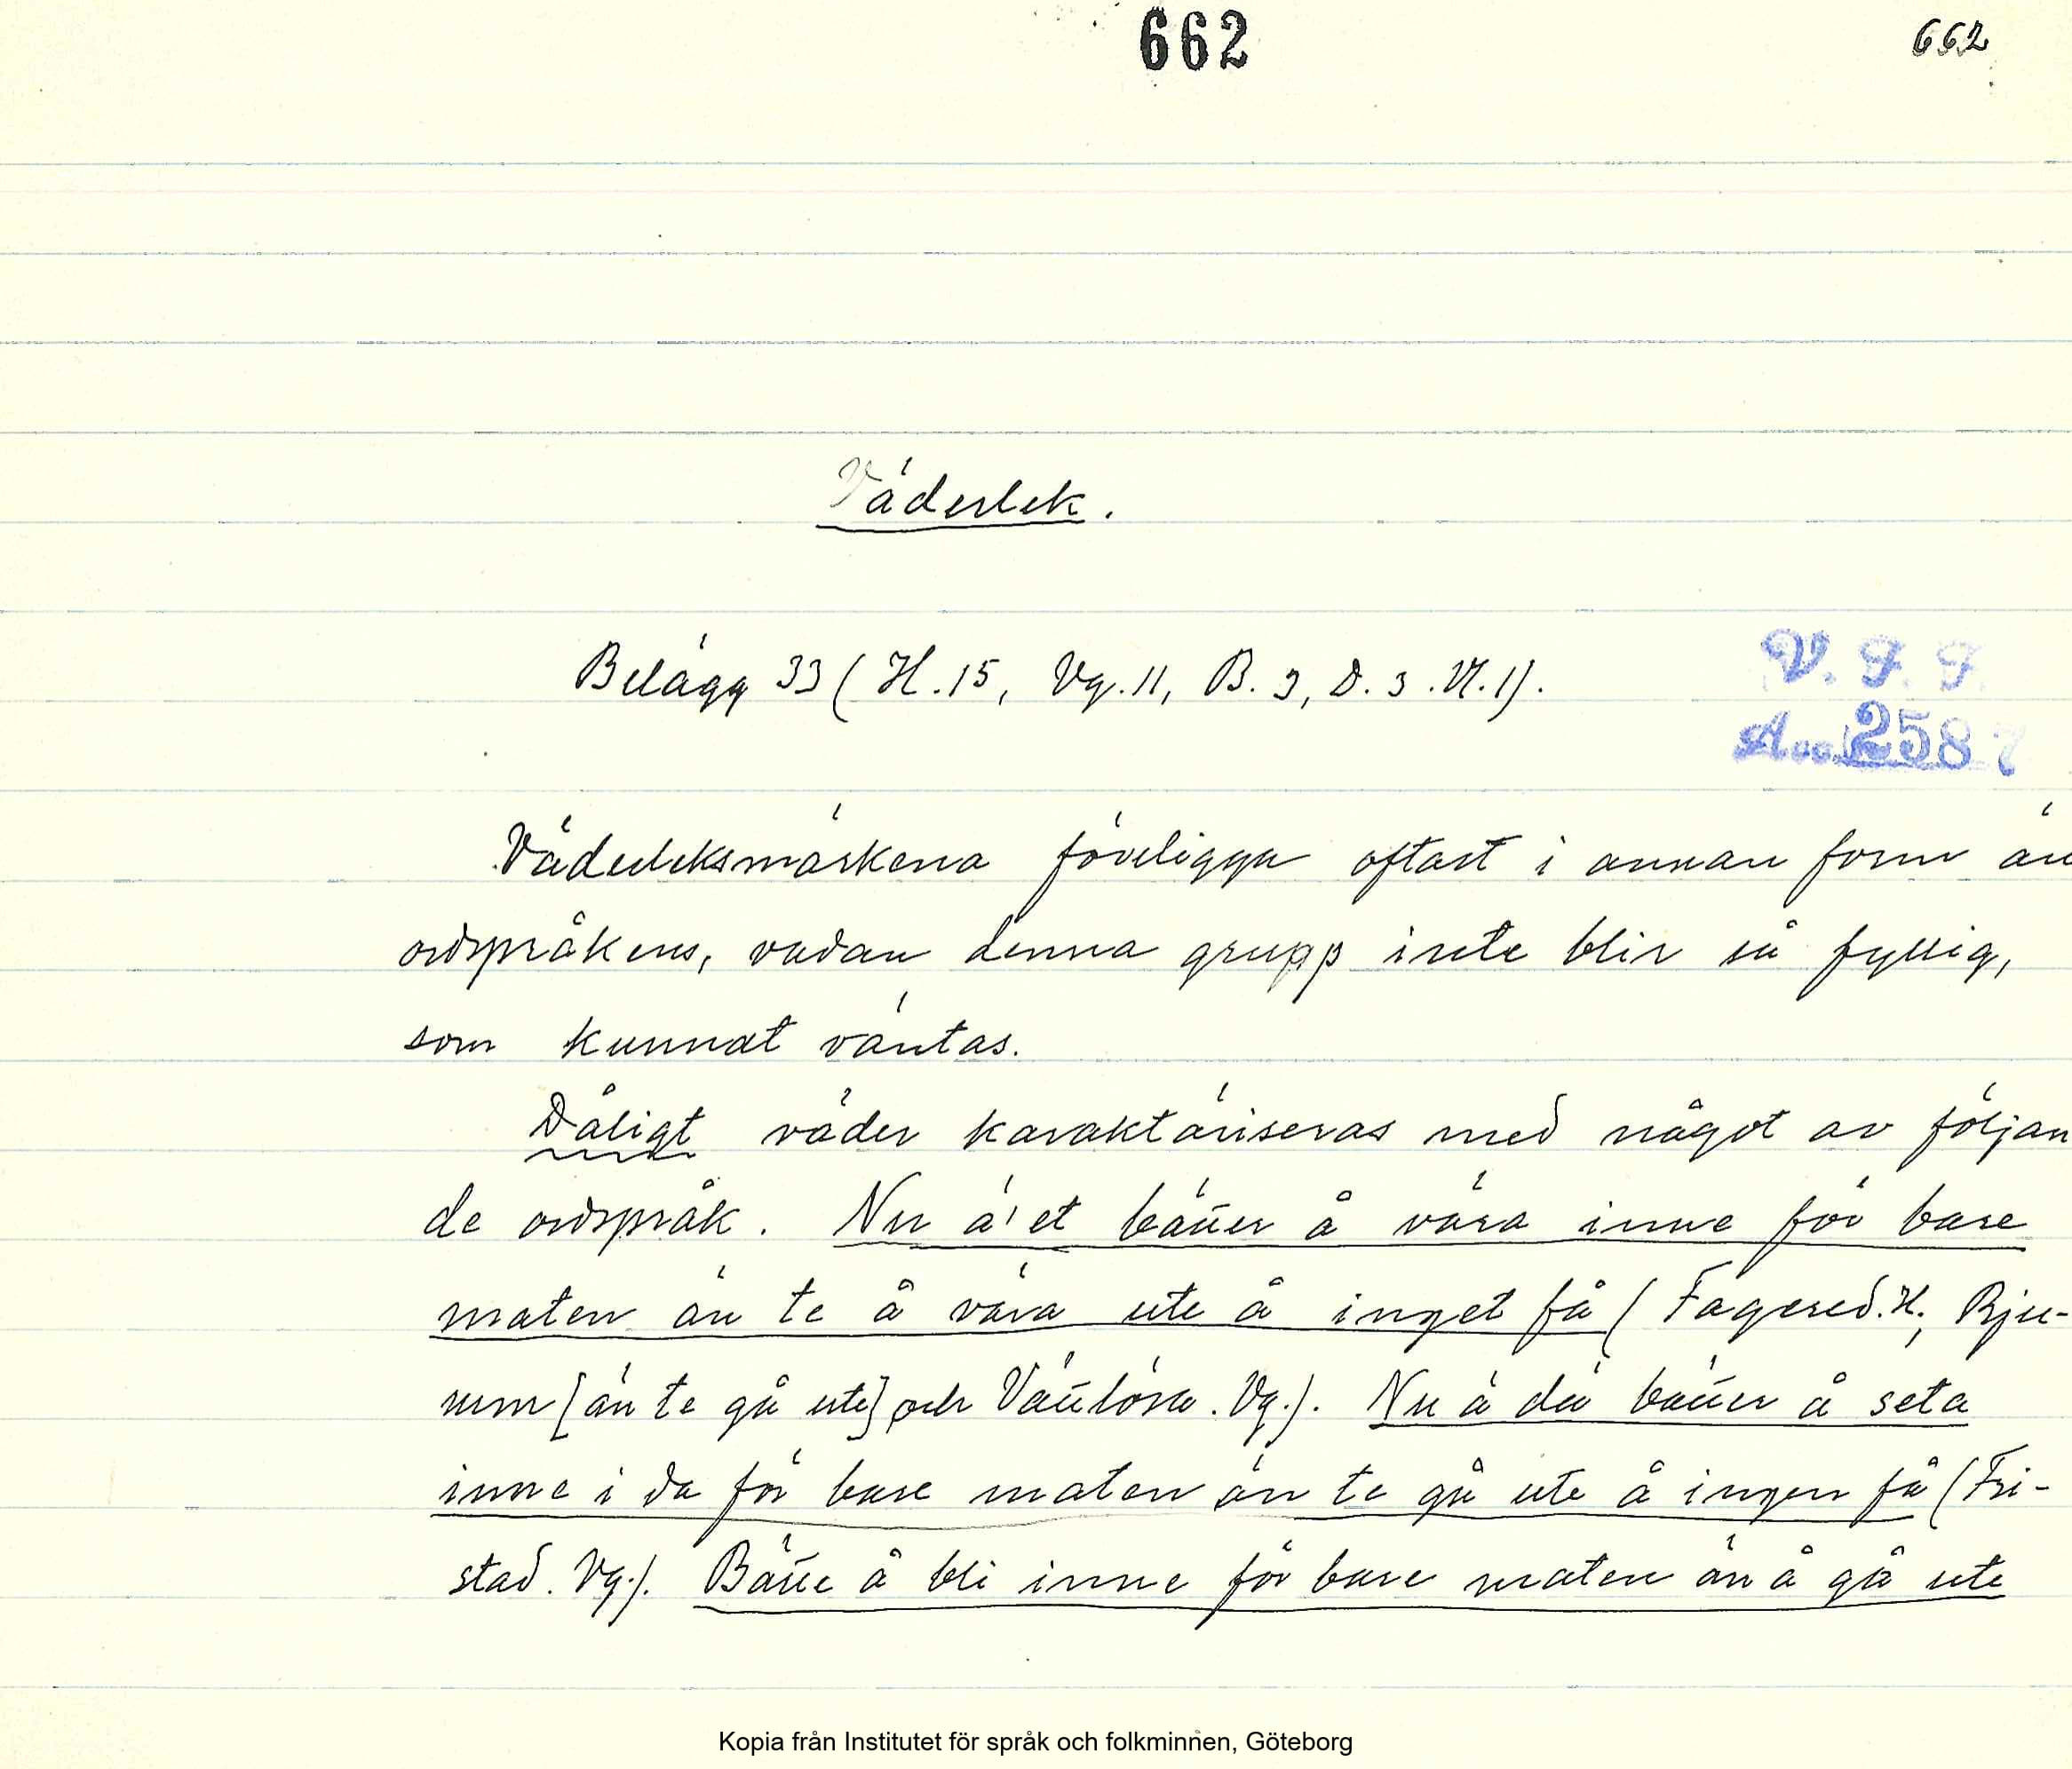 662 662
Väderlek.
Belägg 33 (H. 15, Vg. 11, B. 3, D. 3. Vl. 1).
V. F. F.
Acc. 2587
Väderleksmärkena föreligga oftast i annan form än
ordspråkens, vadan denna grupp inte blir så fyllig,
som kunnat väntas.
Dåligt väder karaktäriseras med något av följan
de ordspråk. Nu ä' et bäūer å våra inne för bare
maten än te å våra ute å inget få (Fagered. H.; Bju-
rum [än te gå ute] och Våūlösa. Vg.). Nu ä dä bäūer å seta
inne i da för bare maten än te gå ute å ingen få (Fri-
stad. Vg.). Bäūe å bli inne för bare maten än å gå ute
Kopia från Institutet för språk och folkminnen, Göteborg